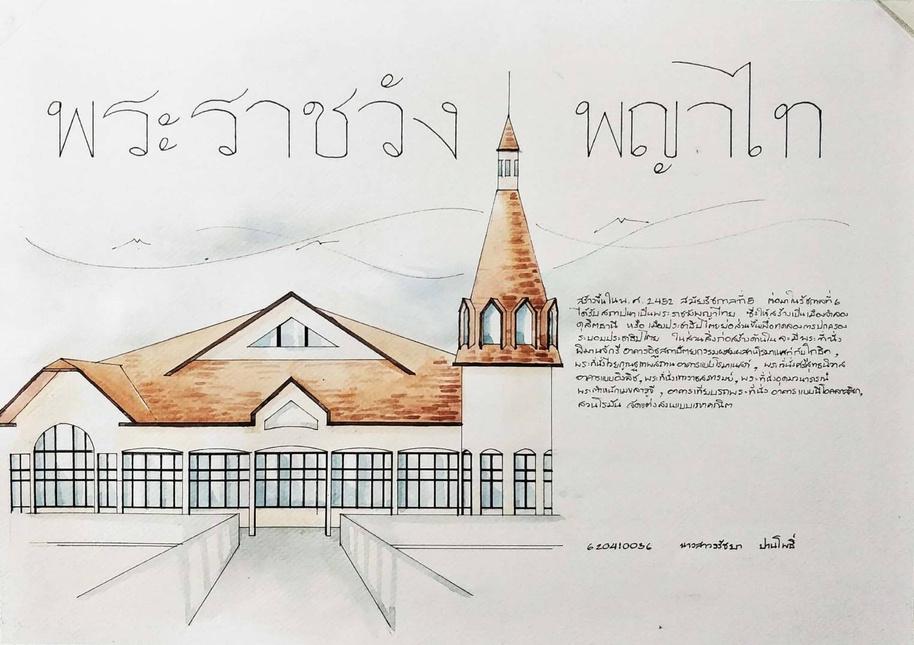 พระราชวัง พญาไท
สร้างขึ้นใน พ.ศ. 2452 สมัยรัชกาลที่ 5 ต่อมาในรัชกาลที่ 6
ได้รับสถาปนาเป็นพระราชวังพญาไท ซึ่งให้สร้างเป็นเมืองจำลอง
ดุสิตธานี หรือเมืองประชาธิปไตยย่อส่วนขึ้นเพื่อทดลองการปกครอง
ระบอบประชาธิปไตย ในส่วนสิ่งก่อสร้างด้านใน จะมีพระที่นั่ง
พิมานจักรี อาคารอิฐสถาปัตยกรรมผสมผสานโรมาเนสก์กับโกธิค,
พระที่นั่งไวกูณฐเทพยสถาน อาคารแบบโรมาเนสก์, พระที่นั่งศรีสุทธนิวาส
อาคารแบบอังกฤษ, พระที่นั่งเทวราชสภารมย์, พระที่นั่งอุดมวนาภรณ์
พระตำหนักเมขลารูจี, อาคารเทียบรถพระที่นั่ง อาคารแบบนีโอคลาสสิก,
สวนโรมัน จัดแต่งสวนแบบเรขาคณิต
620410036 นางสาววรัชยา ปานโพธิ์